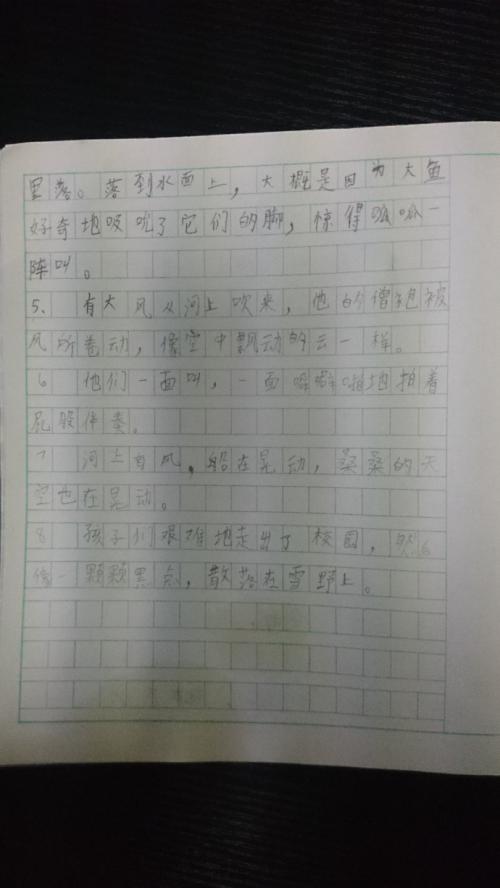 里落。落到水面上，大概是因为大鱼
好奇地吸吮了它们的脚，惊得呱呱一
阵叫。
5. 有大风从河上吹来，他的僧袍被
风所卷动，像空中飘动的云一样。
6 他们一面叫，一面噼噼啪地拍着
屁股伴奏。
7 河上有风，船在晃动，桑桑的天
空也在晃动。
8 孩子们艰难地走出了校园，
像一颗颗黑点，散落在雪野上。